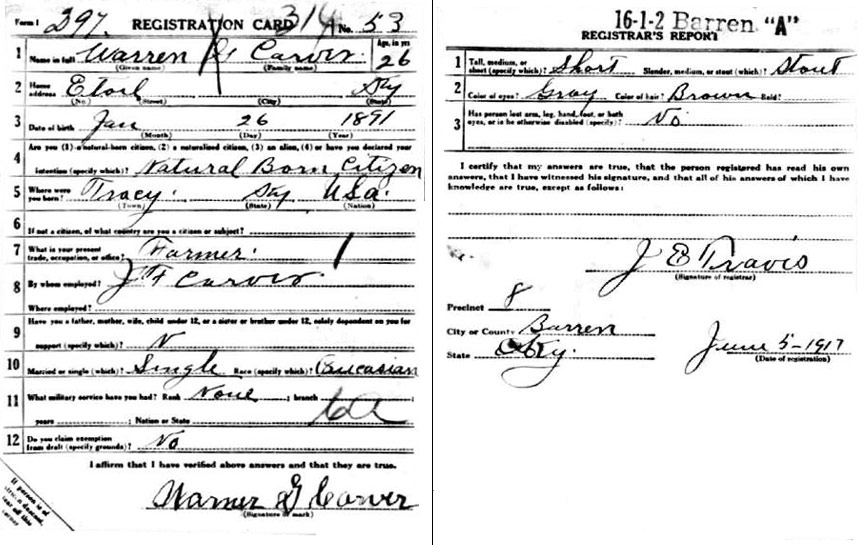 Form 1 297. REGISTRATION CARD 314 No. 53
1 Name in full Warren G Carver Age, in yrs 26
(Given name) (Family name)
2 Home address Etoil Ky
(No.) (Street) (City) (State)
3 Date of birth Jan 26 1891
(Month) (Day) (Year)
Are you (1) a natural-born citizen, (2) a naturalized citizen, (3) an alien, (4) or have you declared your
4 intention (specify which)? Natural Born Citizen
5 Where were you born? Tracy. Ky USa.
(Town) (State) (Nation)
6 If not a citizen, of what country are you a citizen or subject?
7 What is your present trade, occupation, or office? Farmer.
8 By whom employed? J F Carver
Where employed?
9 Have you a father, mother, wife, child under 12, or a sister or brother under 12, solely dependent on you for
support (specify which)? N
10 Married or single (which)? Single Race (specify which)? Caucasian
11 What military service have you had? Rank None ; branch ;
years ; Nation or State
12 Do you claim exemption from draft (specify grounds)? No
I affirm that I have verified above answers and that they are true.
Warner G Carver
(Signature or mark)
If person is of
16-1-2 Barren "A"
REGISTRAR'S REPORT
1 Tall, medium, or short (specify which)? Short Slender, medium, or stout (which)? Stout
2 Color of eyes? Gray Color of hair? Brown Bald?
3 Has person lost arm, leg, hand, foot, or both eyes, or is he otherwise disabled (specify)? No
I certify that my answers are true, that the person registered has read his own
answers, that I have witnessed his signature, and that all of his answers of which I have
knowledge are true, except as follows:
J E Travis
(Signature of registrar)
Precinct 8
City or County Barren
State Ky. June 5-1917
(Date of registration)